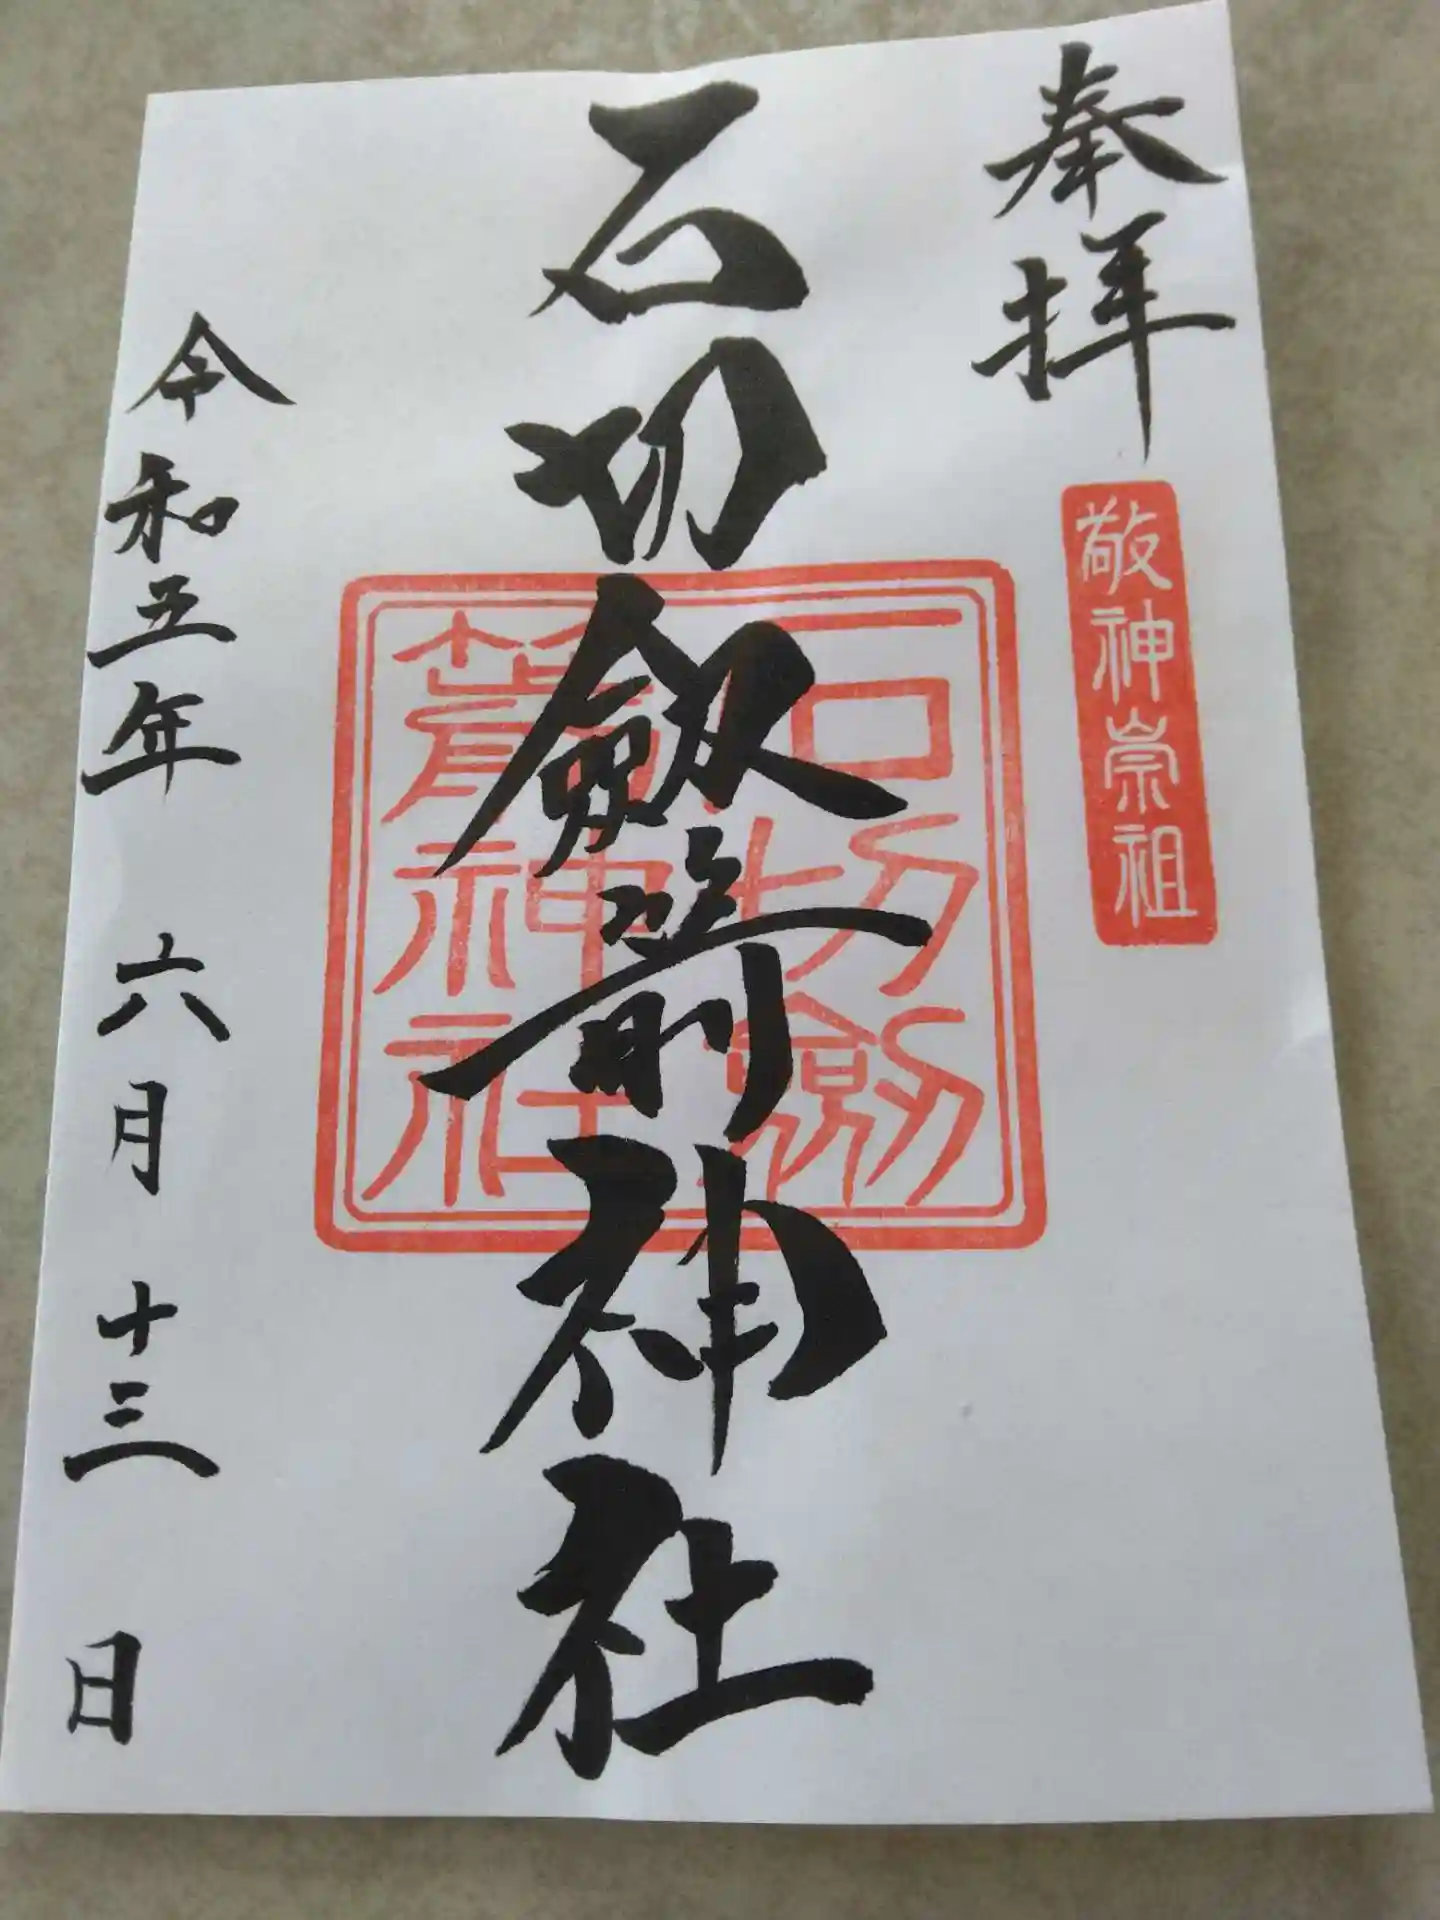 奉拝
敬神崇祖
石切劔箭神社
石切劔
箭神社
令和五年 六月 十三日